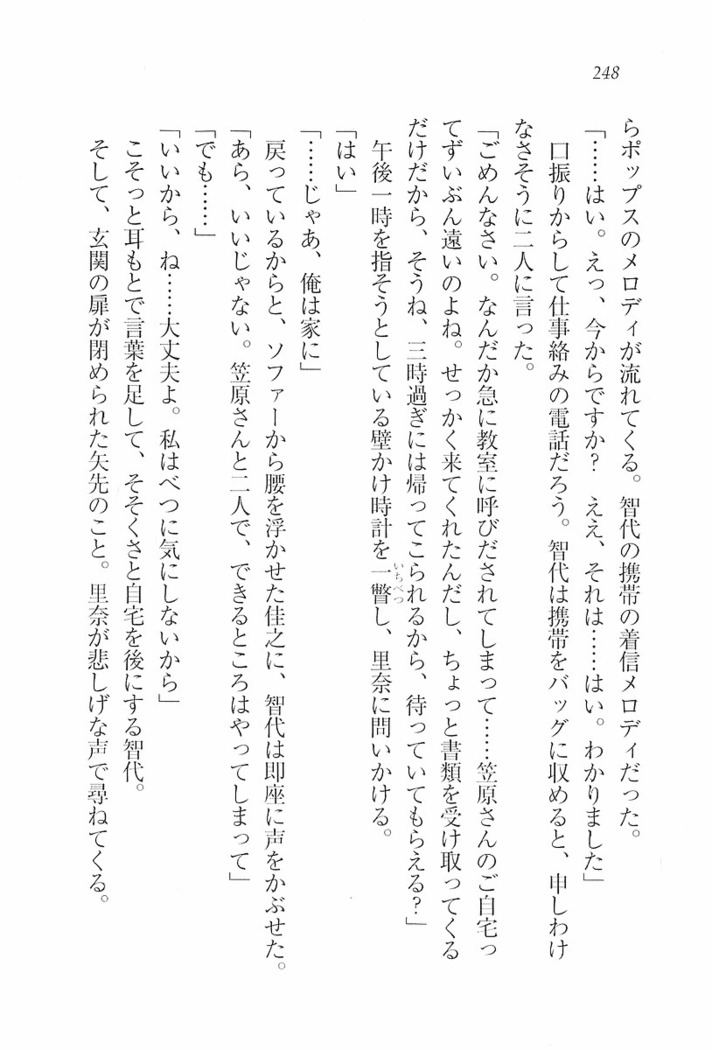 248
らポップスのメロディが流れてくる。智代の携帯の着信メロディだった。
「……はい。えっ、今からですか？　ええ、それは……はい。わかりました」
口振りからして仕事絡みの電話だろう。智代は携帯をバッグに収めると、申しわけ
なさそうに二人に言った。
「ごめんなさい。なんだか急に教室に呼びだされてしまって……笠原さんのご自宅っ
てずいぶん遠いのよね。せっかく来てくれたんだし、ちょっと書類を受け取ってくる
だけだから、そうね、三時過ぎには帰ってこられるから、待っていてもらえる？」
午後一時を指そうとしている壁かけ時計を一瞥し、里奈に問いかける。
いちべつ
「はい」
「……じゃあ、俺は家に」
戻っているからと、ソファーから腰を浮かせた佳之に、智代は即座に声をかぶせた。
「あら、いいじゃない。笠原さんと二人で、できるところはやってしまって」
「でも……」
「いいから、ね……大丈夫よ。私はべつに気にしないから」
こそっと耳もとで言葉を足して、そそくさと自宅を後にする智代。
そして、玄関の扉が閉められた矢先のこと。里奈が悲しげな声で尋ねてくる。